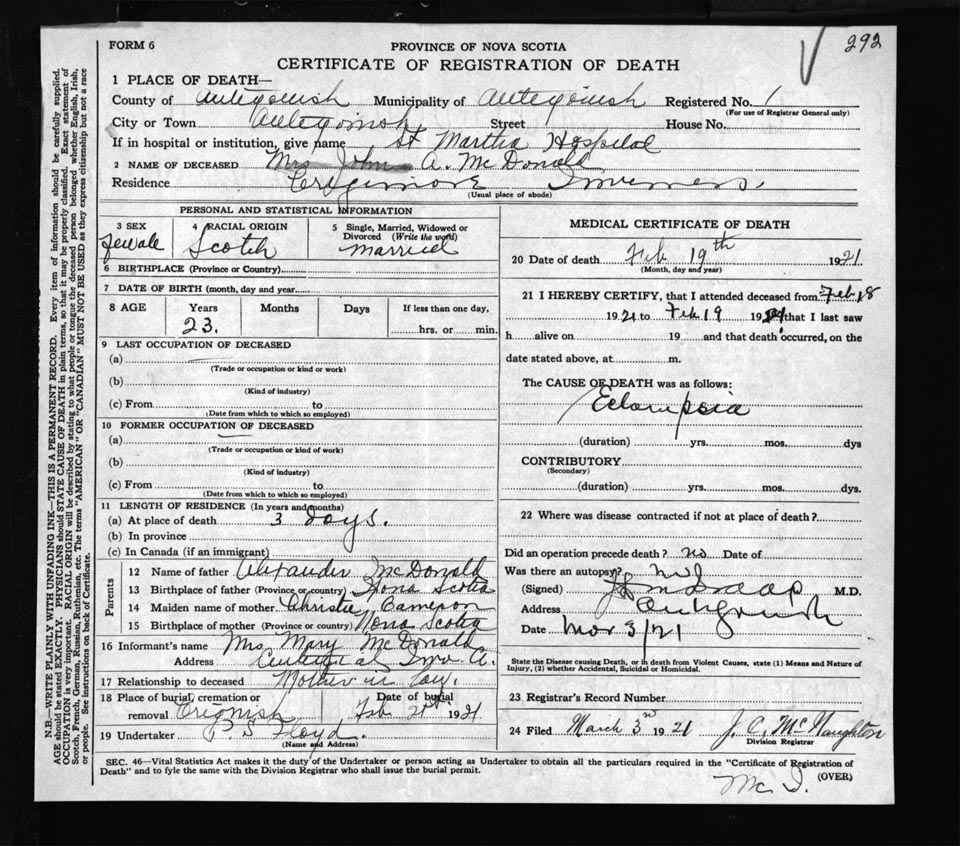 292
FORM 6
PROVINCE OF NOVA SCOTIA
CERTIFICATE OF REGISTRATION OF DEATH
1 PLACE OF DEATH—
County of Antigonish Municipality of Antigonish Registered No. 1
(For use of Registrar General only)
City or Town Antigonish Street House No.
If in hospital or institution, give name St Martha Hospital
2 NAME OF DECEASED Mrs John A. McDonald
Residence Inverness.
(Usual place of abode)
PERSONAL AND STATISTICAL INFORMATION
3 SEX female
4 RACIAL ORIGIN Scotch
5 Single, Married, Widowed or Divorced (Write the word) married
6 BIRTHPLACE (Province or Country)
7 DATE OF BIRTH (month, day and year)
8 AGE Years 23. Months Days If less than one day, hrs. or min.
9 LAST OCCUPATION OF DECEASED
(a)
(Trade or occupation or kind or work)
(b)
(Kind of industry)
(c) From to
(Date from which to which so employed)
10 FORMER OCCUPATION OF DECEASED
(a)
(Trade or occupation or kind of work)
(b)
(Kind of industry)
(c) From to
(Date from which to which so employed)
11 LENGTH OF RESIDENCE (In years and months)
(a) At place of death 3 days.
(b) In province
(c) In Canada (if an immigrant)
Parents
12 Name of father Alexander McDonald
13 Birthplace of father (Province or country) Nova Scotia
14 Maiden name of mother Christie Cameron
15 Birthplace of mother (Province or country) Nova Scotia
16 Informant's name Mrs Mary McDonald
Address
17 Relationship to deceased Mother in law.
18 Place of burial, cremation or removal Creignish Date of burial Feb 21st 1921
19 Undertaker P S Floyd.
(Name and Address)
MEDICAL CERTIFICATE OF DEATH
20 Date of death Feb 19th 1921
(Month, day and year)
21 I HEREBY CERTIFY, that I attended deceased from Feb 18
1921 to Feb 19 1921 that I last saw
h alive on 19 and that death occurred, on the
date stated above, at m.
The CAUSE OF DEATH was as follows:
Eclampsia
(duration) yrs. mos. dys
CONTRIBUTORY
(Secondary)
(duration) yrs. mos. dys.
22 Where was disease contracted if not at place of death?
Did an operation precede death? no Date of
Was there an autopsy? no
(Signed) M.D.
Address Antigonish
Date Mar 3/21
State the Disease causing Death, or in death from Violent Causes, state (1) Means and Nature of
Injury, (2) whether Accidental, Suicidal or Homicidal.
23 Registrar's Record Number
24 Filed March 3rd 1921 J. C. McNaughton
Division Registrar
SEC. 46—Vital Statistics Act makes it the duty of the Undertaker or person acting as Undertaker to obtain all the particulars required in the "Certificate of Registration of
Death" and to fyle the same with the Division Registrar who shall issue the burial permit.
(OVER)
N.B.—WRITE PLAINLY WITH UNFADING INK—THIS IS A PERMANENT RECORD. Every item of information should be carefully supplied.
AGE should be stated EXACTLY. PHYSICIANS should STATE CAUSE OF DEATH in plain terms, so that it may be properly classified. Exact statement of
OCCUPATION is very important. RACIAL ORIGIN will be described by stating to what people or tongue the deceased person belonged whether English, Irish,
Scotch, French, German, Russian, Ruthenian, etc. The terms "AMERICAN" OR "CANADIAN" MUST NOT BE USED as they express citizenship but not a race
or people. See instructions on back of Certificate.